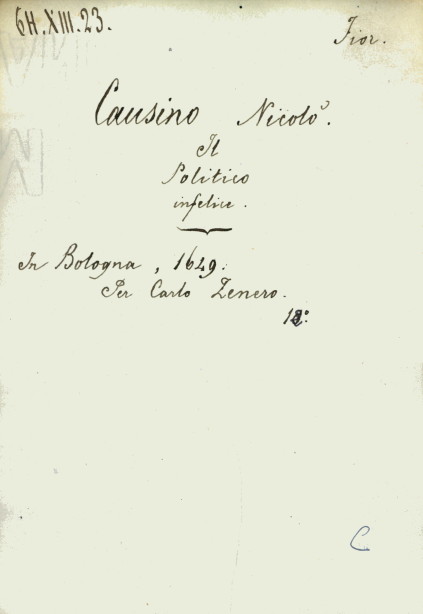 6H.XIII.23.
Fior.
Causino Nicolò.
Il
Politico
infelice.
In Bologna, 1649.
Per Carlo Zenero.
12°.
C